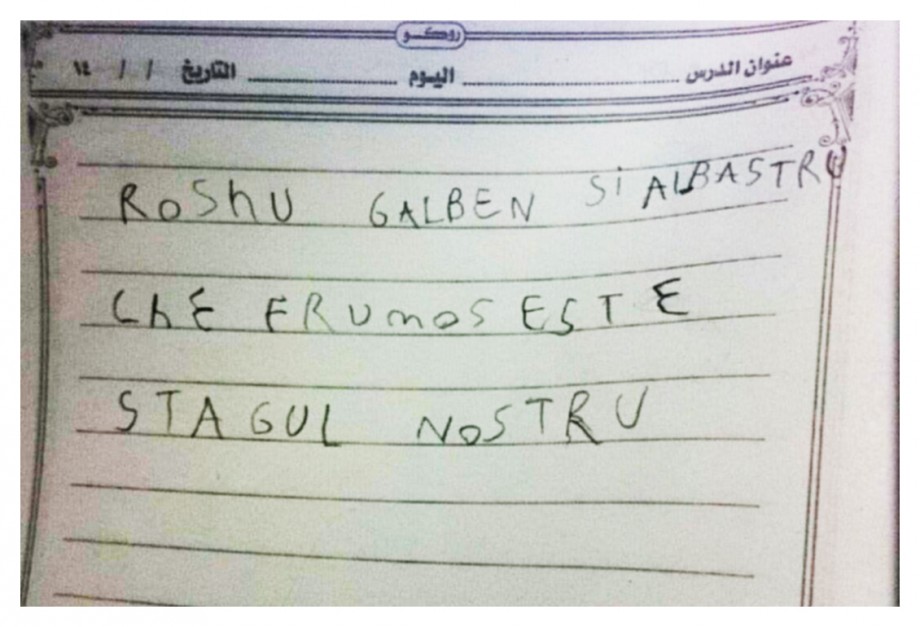 روكو
عنوان الدرس ........................ اليوم ................ التاريخ / / ١٤
RoShU GALBEN Si ALBASTRU
ChE FRUmoS ESTE
STAGUL NoSTRU